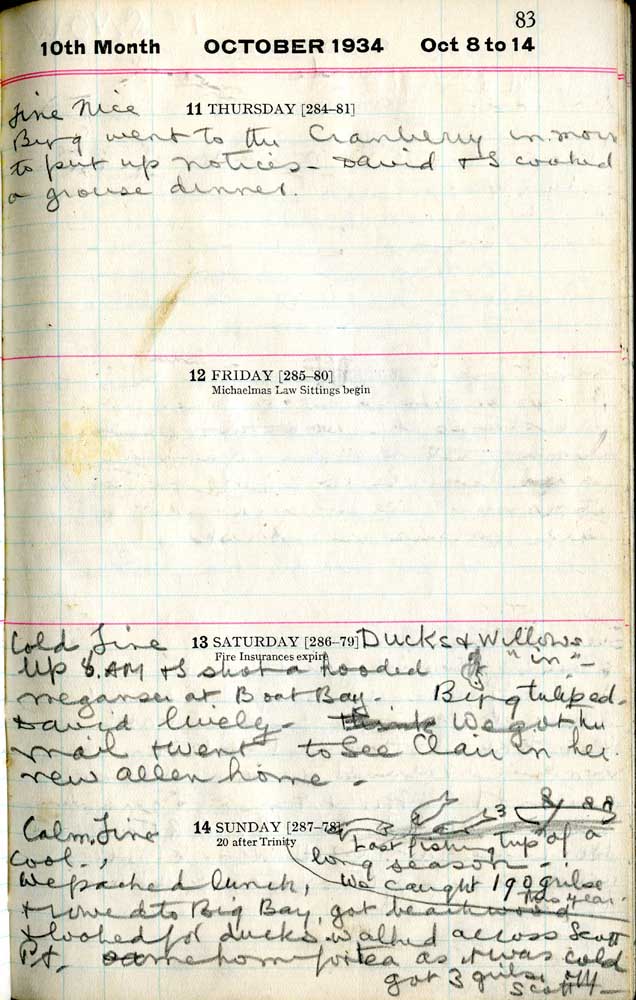 83
10th Month OCTOBER 1934 Oct 8 to 14
Fine Nice 11 THURSDAY [284-81]
Bing went to the Cranberry in morn
to put up notices - David + I cooked
a grouse dinner.
12 FRIDAY [285-80]
Michaelmas Law Sittings begin
Cold, Fine 13 SATURDAY [286-79] Ducks & Willows
Fire Insurances expire "in" -
Up 8. AM + I shot a hooded
meganser at Boat Bay. Bing tuliped.
David lively - think We got the
mail + went to see Clair in her
new allen home -
Calm, Fine 14 SUNDAY [287-78] 3
20 after Trinity Last fishing trip of a
Cool. long season -
We packed lunch, We caught 190 grilse
this year.
+ rowed to Big Bay, got beachwood
+ looked for ducks. walked across Scott
Pt. came home for tea as it was cold
got 3 grilse off
Scott